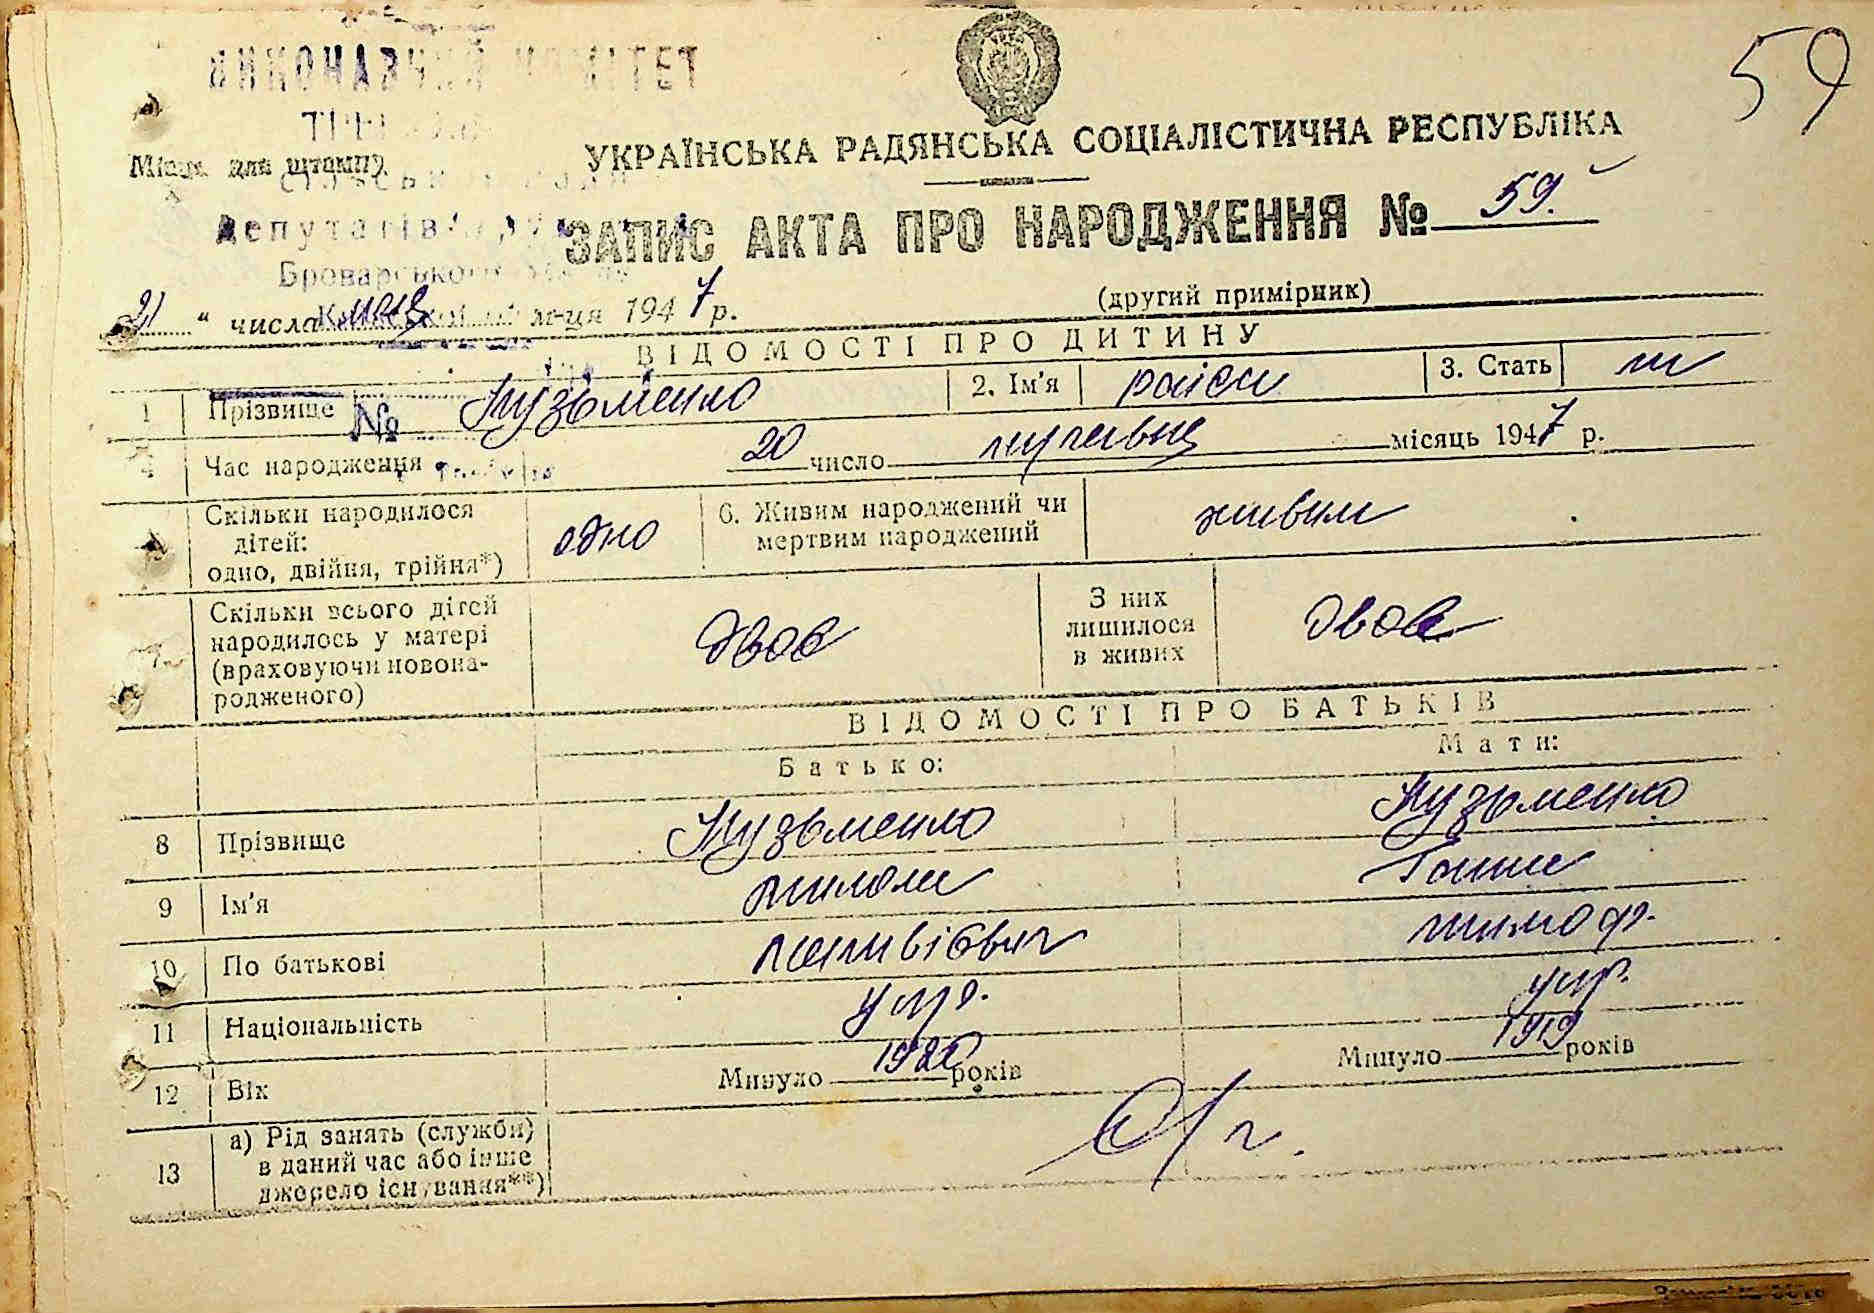 59
Місце для штампу
УКРАЇНСЬКА РАДЯНСЬКА СОЦІАЛІСТИЧНА РЕСПУБЛІКА
депутатів
ЗАПИС АКТА ПРО НАРОДЖЕННЯ № 59.
Броварського
(другий примірник)
21 " числа м-ця 1947 р.
ВІДОМОСТІ ПРО ДИТИНУ
1 Прізвище Кузьменко 2. Ім'я раіса 3. Стать ж
№
4 Час народження 20 число місяць 1947 р.
Скільки народилося дітей: одно, двійня, трійня*) одно 6. Живим народжений чи мертвим народжений живим
7. Скільки всього дітей народилось у матері (враховуючи новонародженого) двоє З них лишилося в живих двоє
ВІДОМОСТІ ПРО БАТЬКІВ
Батько: Мати:
8 Прізвище Кузьменко Кузьменко
9 Ім'я микола Ганна
10 По батькові тимоф.
11 Національність укр. укр.
12 Вік Минуло років Минуло 1919 років
13 а) Рід занять (служби) в даний час або інше джерело існування**)